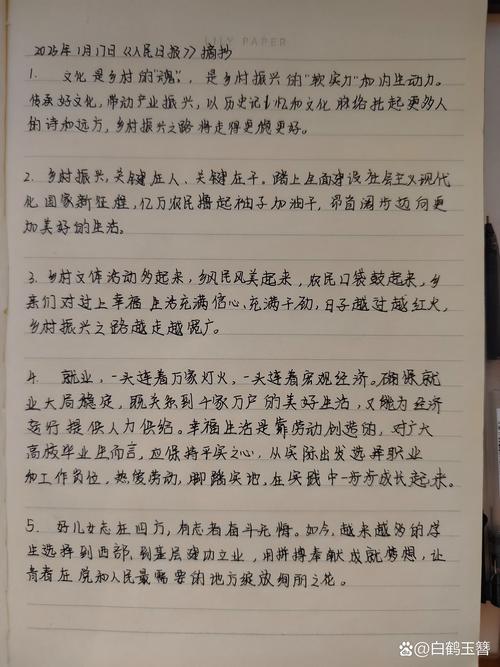 LILY PAPER
2025年1月17日《人民日报》摘抄
1. 文化是乡村的"魂",是乡村振兴的"软实力"和内生动力。
传承好文化,带动产业振兴,以历史记忆和文化脉络托起更多人
的诗和远方,乡村振兴之路将走得更顺更好。
2. 乡村振兴,关键在人、关键在干。踏上全面建设社会主义现代
化国家新征程,亿万农民撸起袖子加油干,昂首阔步迈向更
加美好的生活。
3. 乡村文体活动多起来,乡风民风美起来,农民口袋鼓起来,乡
亲们对过上幸福生活充满信心、充满干劲,日子越过越红火,
乡村振兴之路越走越宽广。
4. 就业,一头连着万家灯火,一头连着宏观经济。确保就
业大局稳定,既关系到千家万户的美好生活,又能为经济
运行提供人力供给。幸福生活是靠劳动创造的,对广大
高校毕业生而言,应保持平实之心,从实际出发选择职业
和工作岗位,热爱劳动,脚踏实地,在实践中一步步成长起来。
5. 好儿女志在四方,有志者奋斗无悔。如今,越来越多的学
生选择到西部、到基层建功立业,用拼搏奉献成就梦想,让
青春在党和人民最需要的地方绽放绚丽之花。
百家号/白鹤玉簪